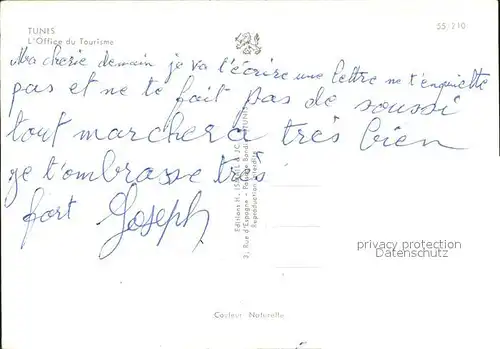 TUNIS
L'Office du Tourisme
55-210
Ma cherie demain je va l'écrire une lettre ne t'enquiette
pas et ne te fait pas de soussi
tout marchera très bien
je t'ombrasse très
fort Joseph
3, Rue d'Espagne - Passage
Reproduction Interdite
privacy protection
Datenschutz
Couleur Naturelle